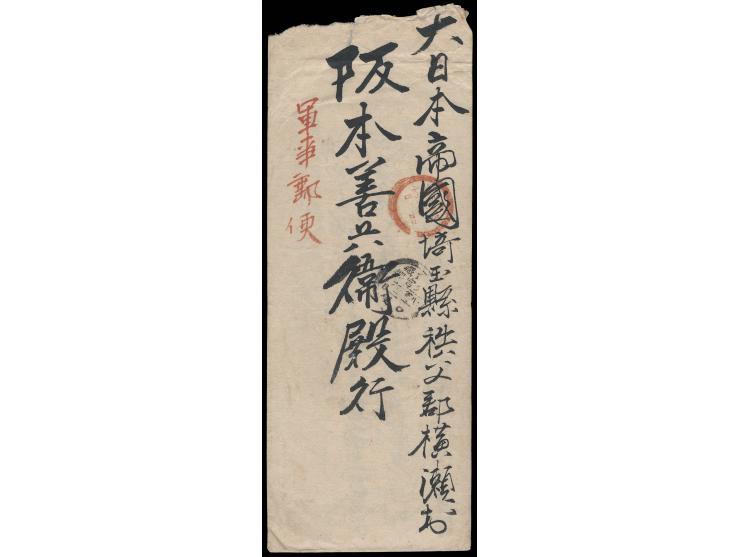 大日本帝國埼玉縣秩父郡橫瀬村
阪本善兵衞殿行
軍事郵便